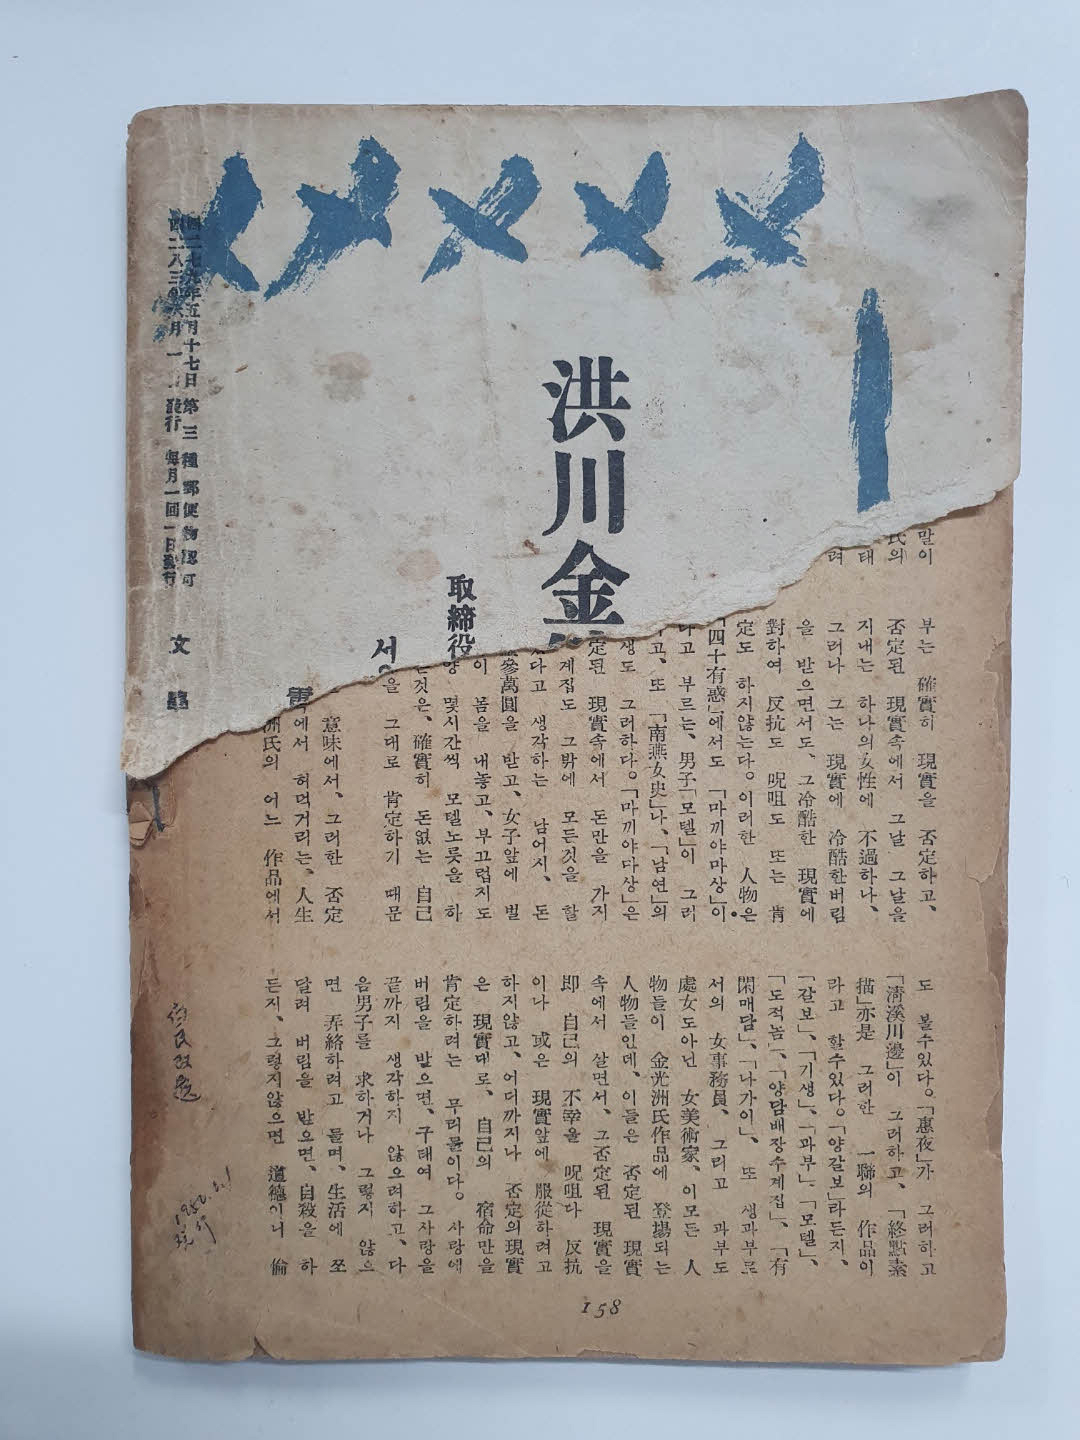 洪川金
取締役
서
四二七九年五月十七日 第三種郵便物認可
四二八三年六月一日 發行 每月一回一日發行
文藝
말이
氏의
태
려
부는 確實히 現實을 否定하고、
否定된 現實속에서 그날 그날을
지내는 하나의女性에 不過하나、
그러나 그는 現實에 冷酷한버림
을 받으면서도、그冷酷한 現實에
對하여 反抗도 呪咀도 또는 肯
定도 하지않는다。이러한 人物은
「四十有惑」에서도 「마끼야마상」이
라고 부르는、男子「모델」이 그러
고、또 「南燕女史」나、「남연」의
생도 그러하다。「마끼야다상」은
定된 現實속에서 돈만을 가지
계집도 그밖에 모든것을 할
있다고 생각하는 남어지、돈
參萬圓을 받고、女子앞에 벌
이 몸을 내놓고、부끄럽지도
몇시간씩 모델노릇을 하
는것은、確實히 돈없는 自己
을 그대로 肯定하기 때문
意味에서、그러한 否定
에서 허먹거리는、人生
洲氏의 어느 作品에서
도 볼수있다。「惠夜」가 그러하고
「淸溪川邊」이 그러하고、「終點素
描」亦是 그러한 一聯의 作品이
라고 할수있다。「양갈보」라든지、
「갈보」、「기생」、「과부」、「모델」、
「도적놈」、「양담배장수계집」、「有
閑매담」、「나가이」、또 생과부로
서의 女事務員、그리고 과부도
處女도아닌 女美術家、이모든 人
物들이 金光洲氏作品에 登場되는
人物들인데、이들은 否定된 現實
속에서 살면서、그否定된 現實을
即 自己의 不幸을 呪咀다 反抗
이나 或은 現實앞에 服從하려고
하지않고、어디까지나 否定의現實
은 現實대로、自己의 宿命만을
肯定하려는 무리들이다。사랑에
버림을 받으면、구태여 그사랑을
끝까지 생각하지 않으려하고、다
음男子를 求하거나 그렇지 않으
면 弄絡하려고 들며、生活에 쪼
달려 버림을 받으면、自殺을 하
든지、그렇지않으면 道德이니 倫
158